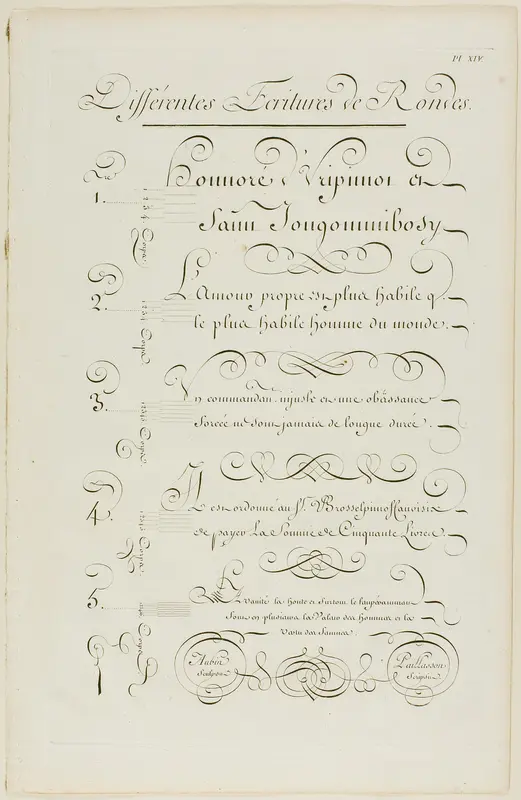 Pl. XIV.
Différentes Ecritures de Rondes.
1.
Honnoré
Saint
2.
L'Amour propre est plus habile q.
le plus habile homme du monde.
3.
Un commandant injuste et une obéissance
forcée ne sont jamais de longue durée.
4.
Il est ordonné au Sr.
de payer La Somme de Cinquante Livres
5.
vanité la honte et surtout le
Font en plusieurs la Valeur des Hommes et la
Vertu des Femmes
Aubin
Sculpsit
Paillasson
Scripsit